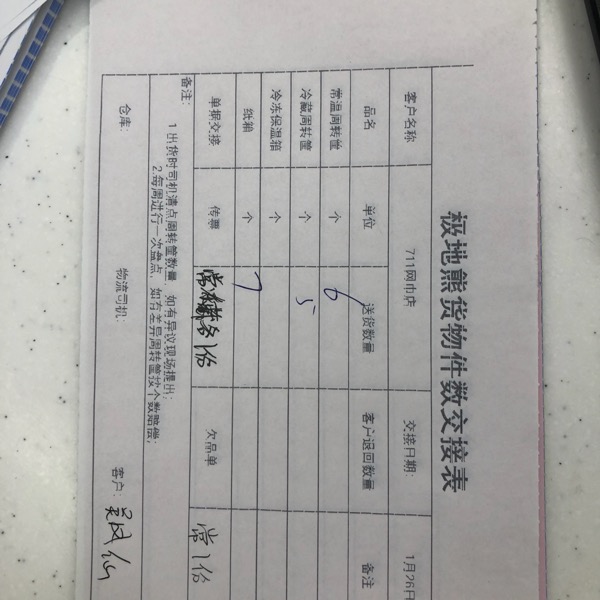 极地熊货物件数交接表
客户名称 711网巾店 交接日期: 1月26日
品名 单位 送货数量 客户退回数量 备注
常温周转筐 个 6
冷藏周转筐 个 5
冷冻保温箱 个
纸箱 个 7
单据交接 传票 1份 欠品单 常1份
备注:
1.出货时司机清点周转筐数量,如有异议现场提出;
2.每周进行一次盘点,如有差异周转筐按个数赔偿;
仓库: 物流司机: 客户: